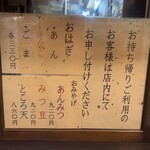 お持ち帰りご利用の
お客様は店内にて
お申し付けください
おみやげ
おはぎ
あん
ごま
各二三〇円
あんみつ
九二〇円
みつ豆
九二〇円
ところ天
八六〇円